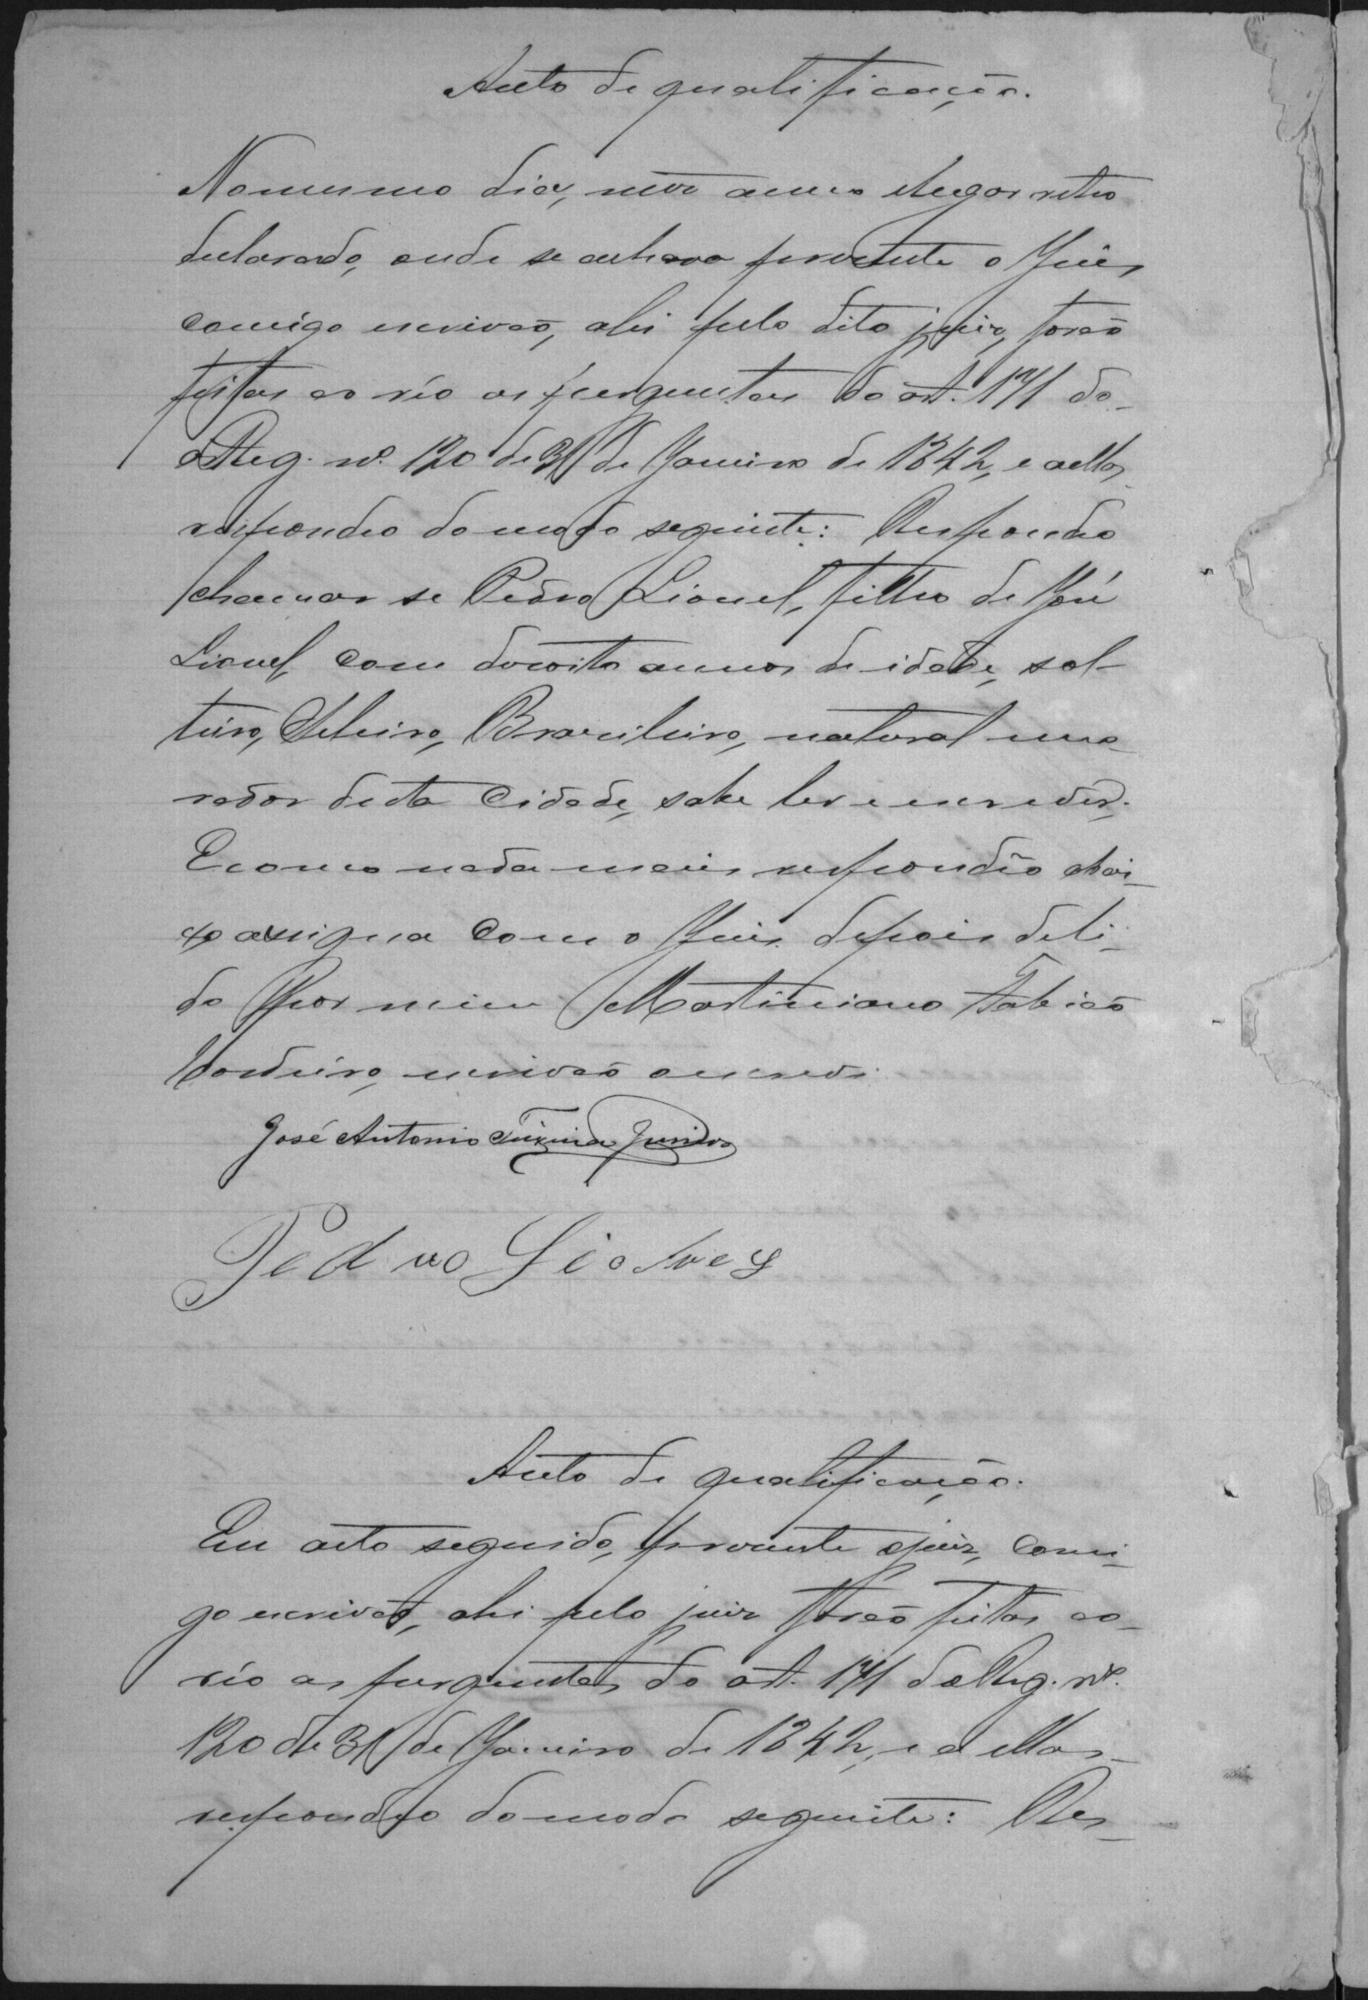 Auto de qualificação.
No mesmo dia, mez anno e lugar retro
declarado, onde se achava presente o Juiz
comigo escrivaõ, ahi pelo dito juiz, foraõ
feitas ao réo as perguntas do art. 171 do
Reg. nº. 120 de 31 de Janeiro de 1842, e a ellas
respondeo do modo seguinte: Respondeo
chamar se Pedro Lionel, filho de José
Lionel, com desoito annos de idade, sol-
teiro, Seleiro, Brazileiro, natural mo-
rador desta Cidade, sabe ler e escrever.
E como nada mais respondêo abai-
xo assigna com o Juiz depois de li-
do Por mim Martiniano Fabiaõ
Cordeiro, escrivaõ o escrevi.
José Antonio Teixeira Junior
Pedro Lionel
Auto de qualificação.
Em acto seguido, presente o juiz, comi-
go escrivaõ, ahi pelo juiz foraõ feitas ao
réo as perguntas do art. 171 do Reg. nº.
120 de 31 de Janeiro de 1842, e a ellas
respondeo do modo seguinte: Res-